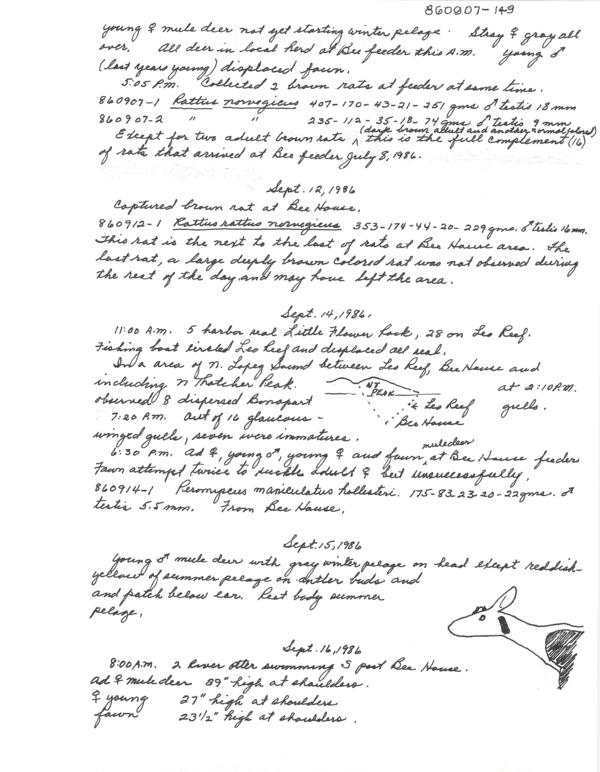 860907-149
young ♀ mule deer not yet starting winter pelage. Stray ♀ gray all
over. All deer in local herd at Bee feeder this A.M. young ♂
(last years young) displaced fawn.
5:05 P.M. Collected 2 brown rats at feeder at same time.
860907-1 Rattus norvegicus 407-170-43-21-251 gms ♂ testis 18 mm
860907-2 " " 235-112-35-18-74 gms ♂ testis 9 mm
(dark brown adult and another normal colored)
Except for two adult brown rats ^ this is the full complement (16)
of rats that arrived at Bee feeder July 8, 1986.
Sept. 12, 1986
Captured brown rat at Bee House.
860912-1 Rattus rattus norvegicus 353-174-44-20-229 gms. ♂ testis 16 mm.
This rat is the next to the last of rats at Bee House area. The
last rat, a large deeply brown colored rat was not observed during
the rest of the day and may have left the area.
Sept. 14, 1986.
11:00 A.M. 5 harbor seal Little Flower Rock, 28 on Leo Reef.
Fishing boat circled Leo Reef and displaced all seal.
In a area of N. Lopez Sound between Leo Reef, Bee House and
including N Thatcher Peak. at 2:10 P.M.
NT PEAK
observed 8 dispersed Bonapart gulls.
Leo Reef
Bee House
7:20 P.M. Out of 16 glaucous-
winged gulls, seven were immatures.
mule deer
6:30 P.M. Ad ♀, young ♂, young ♀ and fawn ^ at Bee House feeder
Fawn attempt twice to suckle adult ♀ but unsuccessfully.
860914-1 Peromyscus maniculatus hollesteri. 175-83-23-20-22 gms. ♂
testis 5.5 mm. From Bee House.
Sept. 15, 1986
Young ♂ mule deer with gray winter pelage on head except reddish-
yellow of summer pelage on antler buds and
and patch below ear. Rest body summer
pelage.
Sept. 16, 1986
8:00 A.M. 2 River otter swimming S past Bee House.
Ad ♀ mule deer 39" high at shoulders.
♀ young 27" high at shoulders
fawn 23 1/2" high at shoulders.